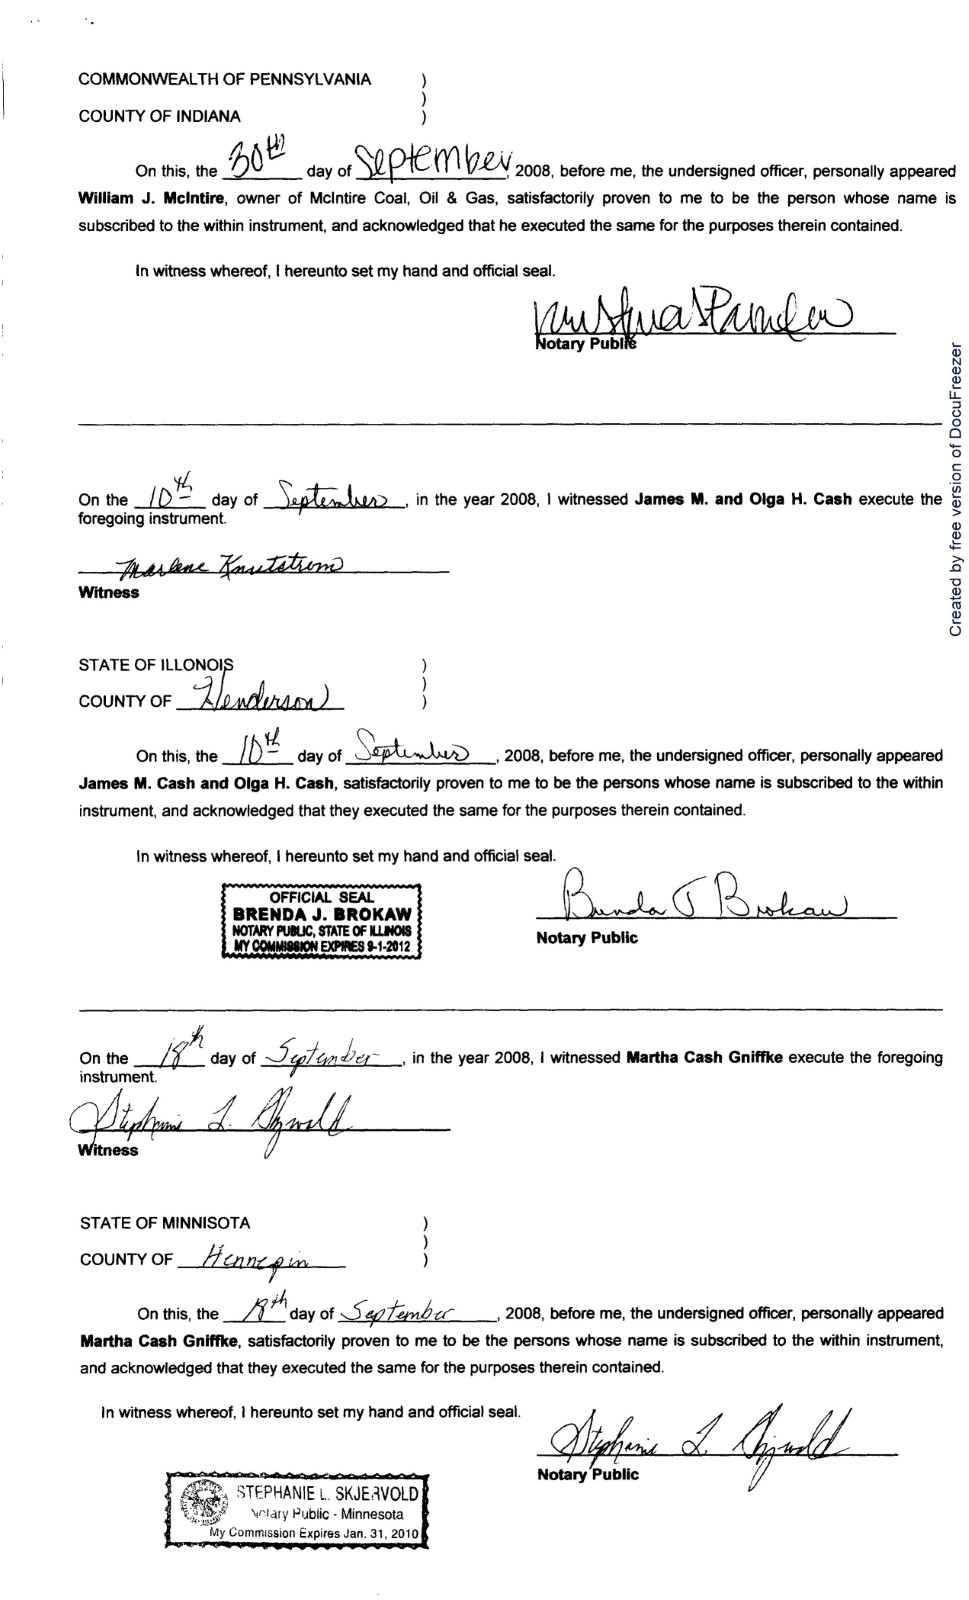 COMMONWEALTH OF PENNSYLVANIA )
)
COUNTY OF INDIANA )
On this, the 30th day of September, 2008, before me, the undersigned officer, personally appeared
William J. McIntire, owner of McIntire Coal, Oil & Gas, satisfactorily proven to me to be the person whose name is
subscribed to the within instrument, and acknowledged that he executed the same for the purposes therein contained.
In witness whereof, I hereunto set my hand and official seal.
Notary Public
On the 10th day of September, in the year 2008, I witnessed James M. and Olga H. Cash execute the
foregoing instrument.
Marlene Knutstrom
Witness
STATE OF ILLONOIS )
)
COUNTY OF Henderson )
On this, the 10th day of September, 2008, before me, the undersigned officer, personally appeared
James M. Cash and Olga H. Cash, satisfactorily proven to me to be the persons whose name is subscribed to the within
instrument, and acknowledged that they executed the same for the purposes therein contained.
In witness whereof, I hereunto set my hand and official seal.
OFFICIAL SEAL
BRENDA J. BROKAW
NOTARY PUBLIC, STATE OF ILLINOIS
MY COMMISSION EXPIRES 9-1-2012
Brenda J Brokaw
Notary Public
On the 18th day of September, in the year 2008, I witnessed Martha Cash Gniffke execute the foregoing
instrument.
Stephanie L. Skjervold
Witness
STATE OF MINNISOTA )
)
COUNTY OF Hennepin )
On this, the 18th day of September, 2008, before me, the undersigned officer, personally appeared
Martha Cash Gniffke, satisfactorily proven to me to be the persons whose name is subscribed to the within instrument,
and acknowledged that they executed the same for the purposes therein contained.
In witness whereof, I hereunto set my hand and official seal.
Stephanie L. Skjervold
Notary Public
STEPHANIE L. SKJERVOLD
Notary Public - Minnesota
My Commission Expires Jan. 31, 2010
Created by free version of DocuFreezer